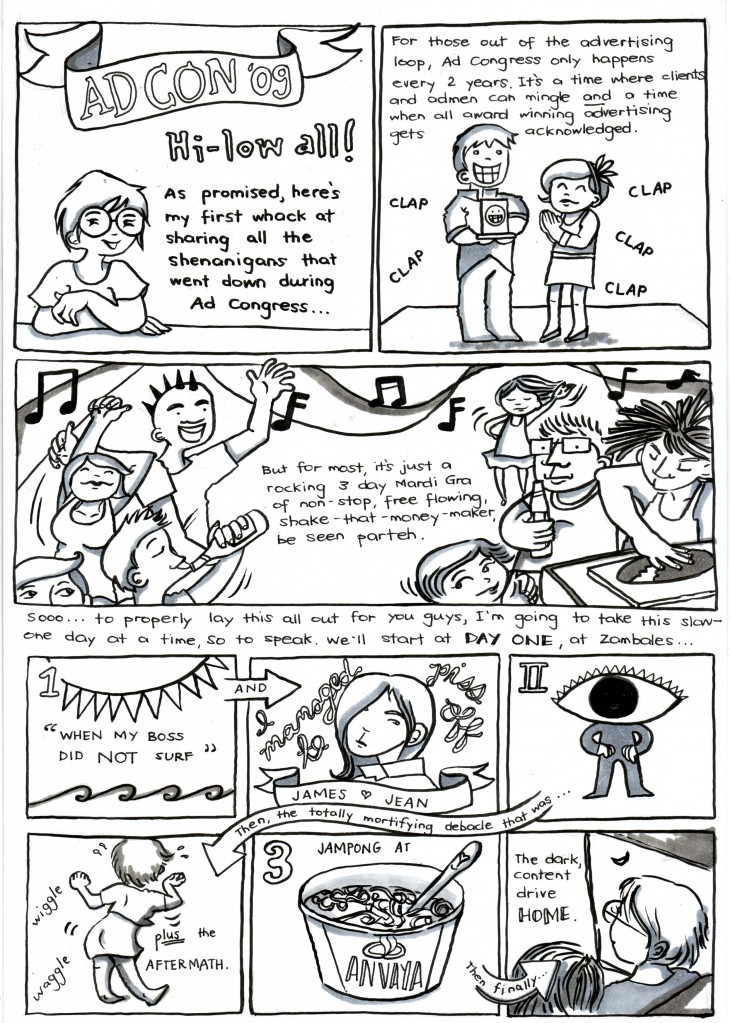 AD CON '09
Hi-low all!
As promised, here's
my first whack at
sharing all the
shenanigans that
went down during
Ad Congress...
For those out of the advertising
loop, Ad Congress only happens
every 2 years. It's a time where clients
and admen can mingle and a time
when all award winning advertising
gets acknowledged.
CLAP
CLAP
CLAP
CLAP
CLAP
But for most, it's just a
rocking 3 day Mardi Gra
of non-stop, free flowing,
shake-that-money-maker,
be seen parteh.
Sooo... to properly lay this all out for you guys, I'm going to take this slow-
one day at a time, so to speak. We'll start at DAY ONE, at Zambales...
1
"WHEN MY BOSS
DID NOT SURF"
AND
I managed to
piss off
JAMES ♡ JEAN
II
Then, the totally mortifying debacle that was...
wiggle
waggle
plus the
AFTERMATH.
3
JAMPONG AT
ANVAYA
The dark,
content
drive
HOME.
Then finally...